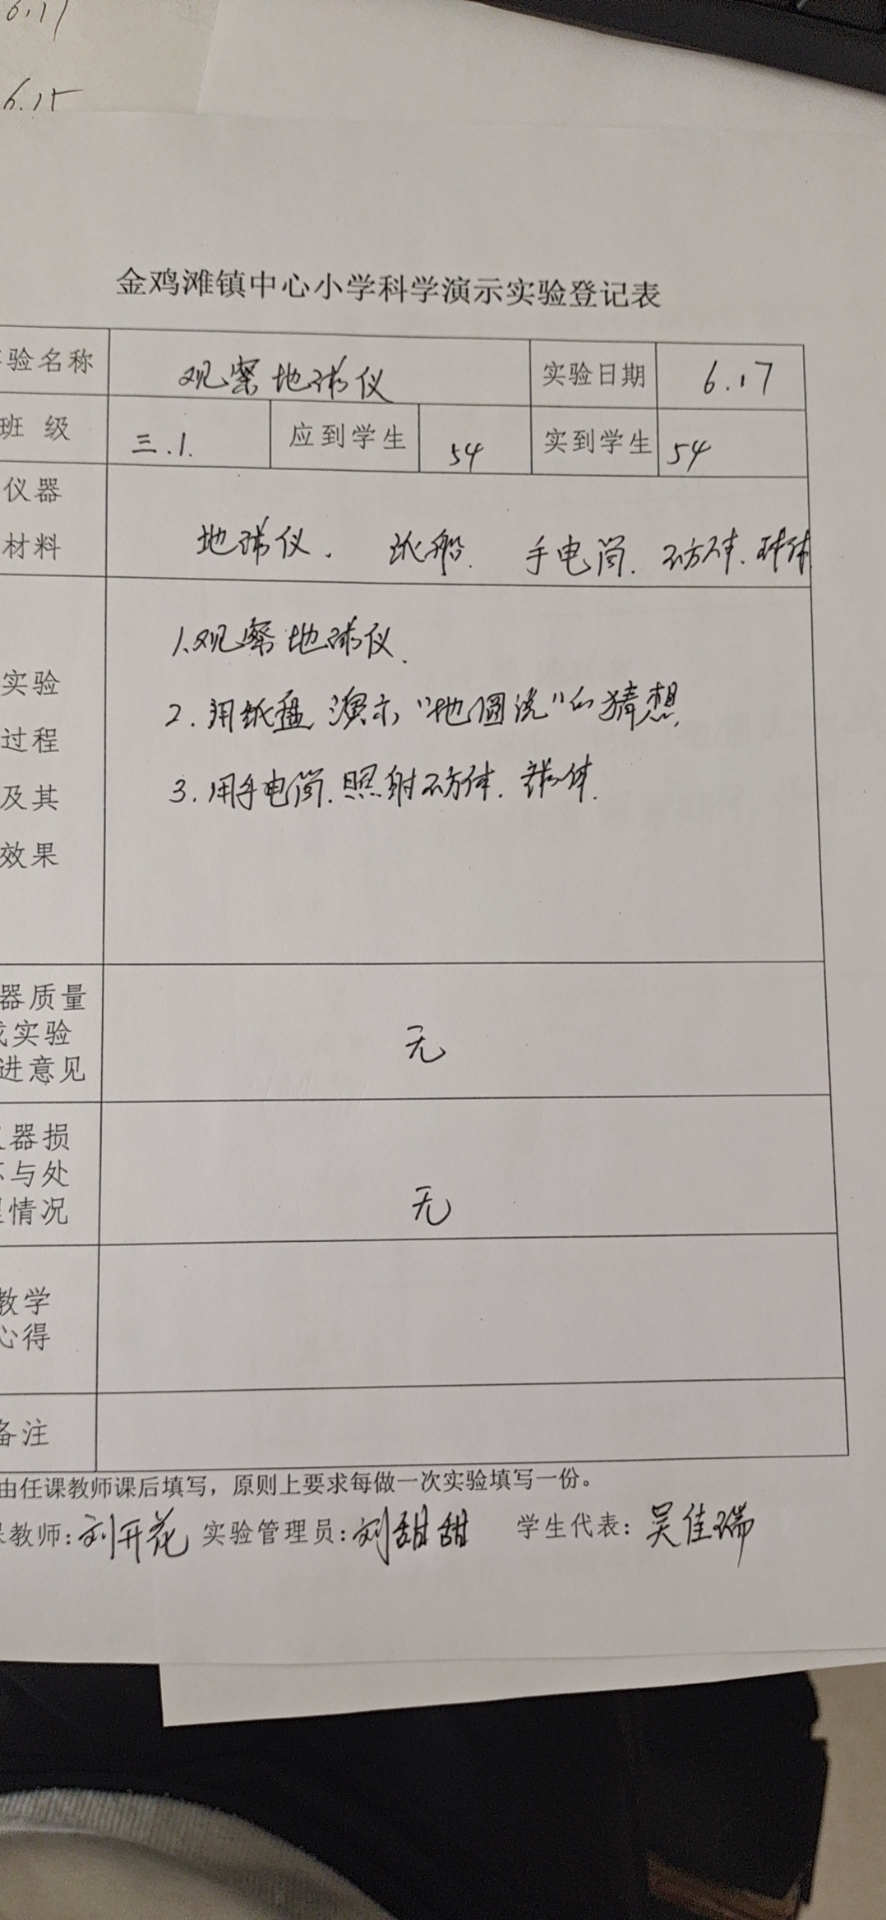 6.17
6.15
金鸡滩镇中心小学科学演示实验登记表
验名称 观察地球仪 实验日期 6.17
班 级 三.1. 应到学生 54 实到学生 54
仪器
材料 地球仪. 纸船. 手电筒. 正方体. 球体
实验
过程
及其
效果
1.观察地球仪.
2.用纸盘演示"地圆说"的猜想.
3.用手电筒.照射正方体.球体.
器质量
实验
进意见
无
器损
与处
情况
无
教学
心得
备注
由任课教师课后填写，原则上要求每做一次实验填写一份。
教师:刘开花 实验管理员:刘甜甜 学生代表:吴佳瑞